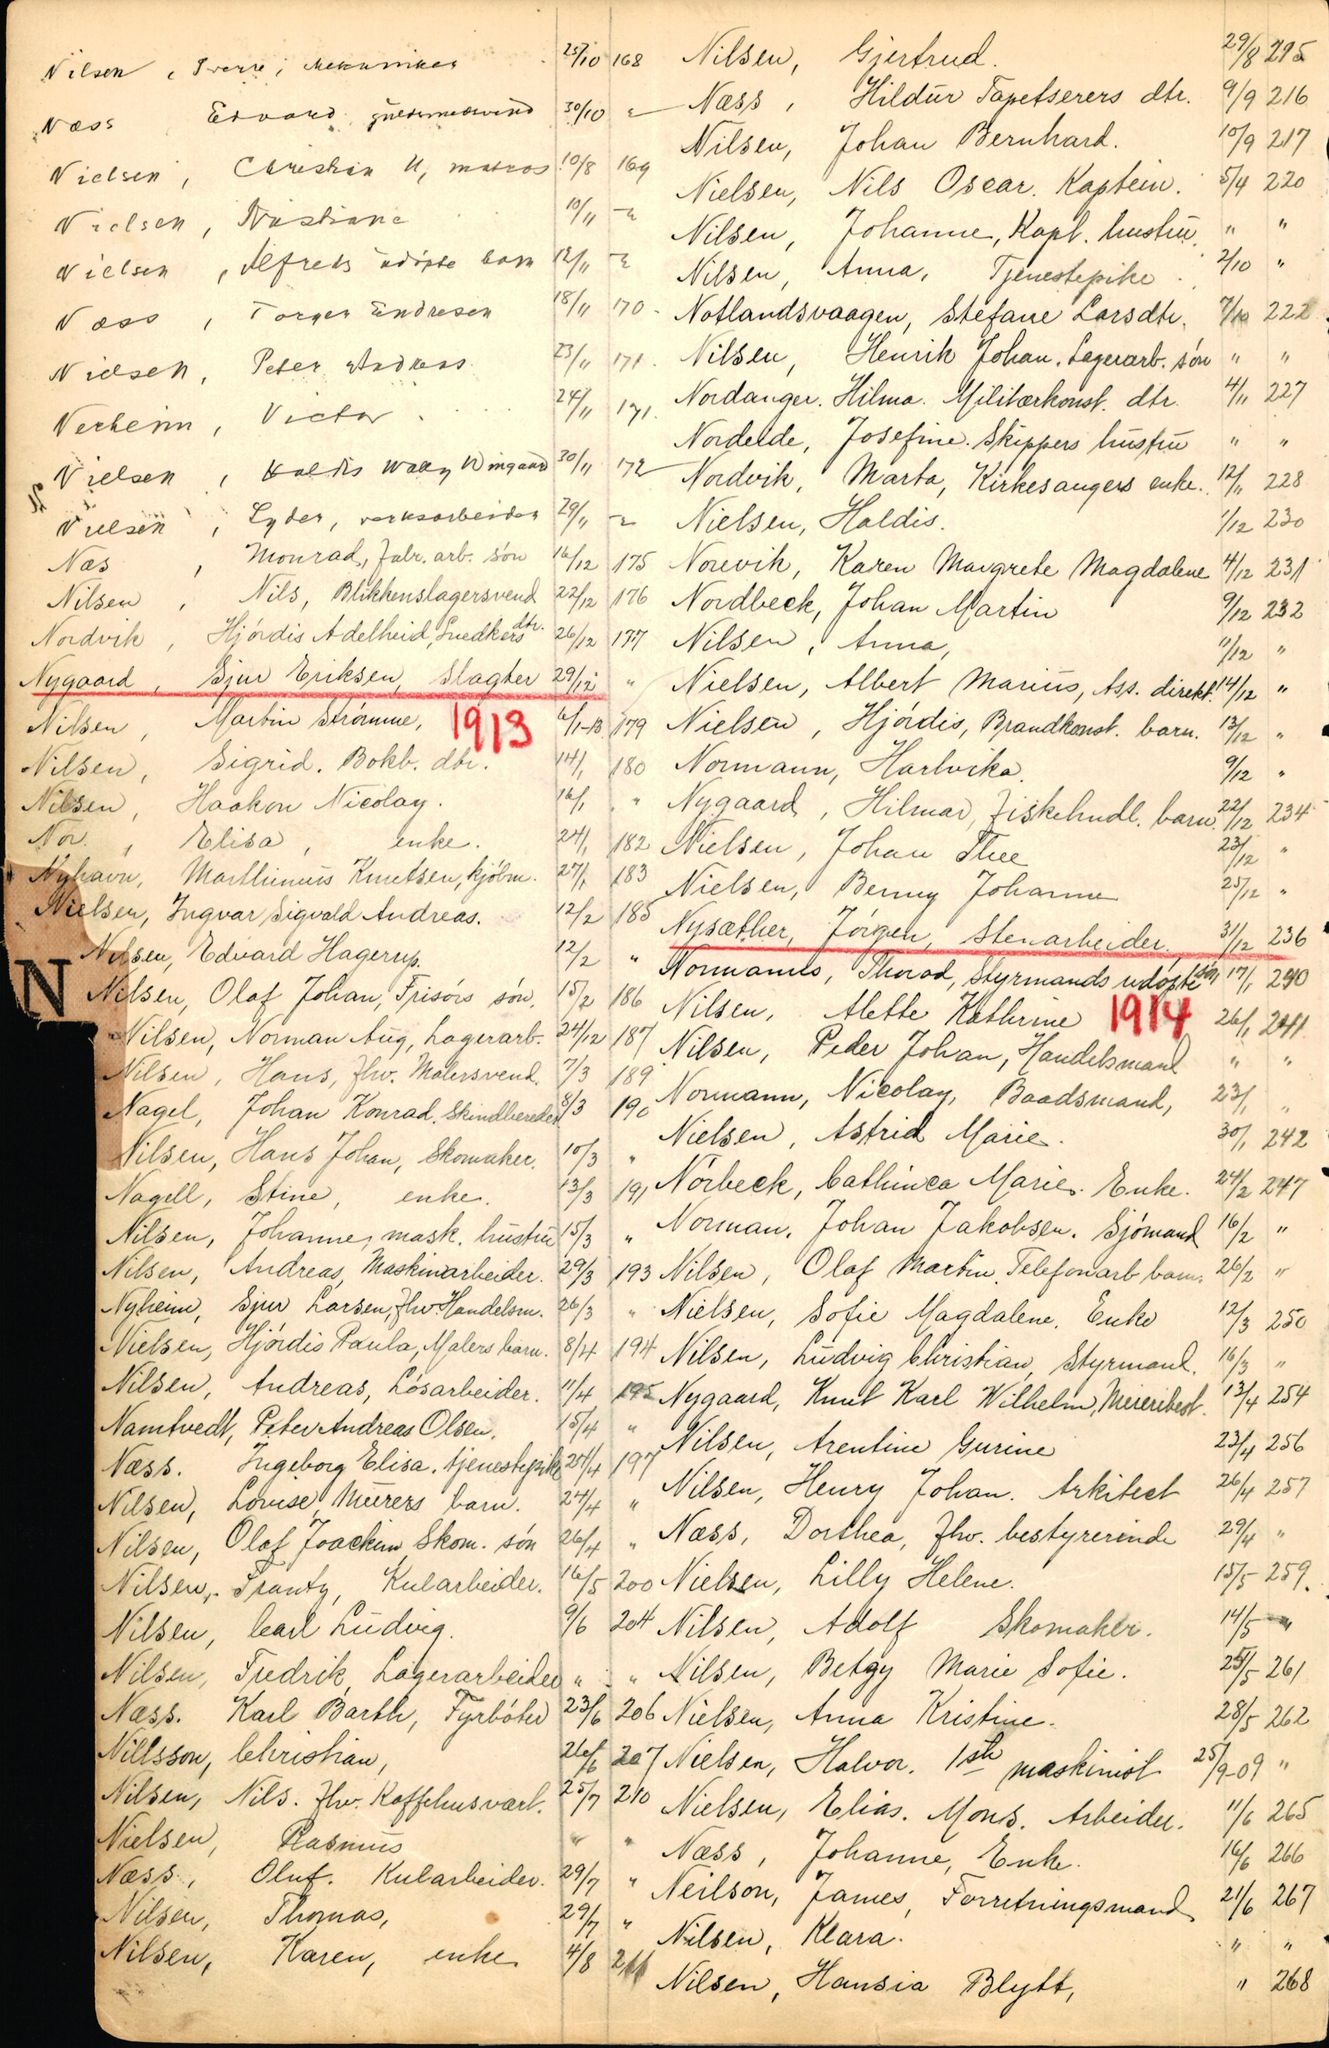 Nilsen, Sverre, Mekaniker 25/10 168
Næss Edvard, guldsmedsvend 30/10 "
Nielsen, Christian U, matros 10/8 169
Nielsen, Kristiane 10/11 "
Nielsen, Alfreds udöpte barn 12/11 "
Næss, Torger Endresen 18/11 170
Nielsen, Peter Andreas 23/11 171
Verheim, Victor 24/11 171
Nielsen, Haldis Wally 30/11 172
Nielsen, Lyder, verksarbeider 29/11 "
Næs, Monrad, Fabr. arb. sön 16/12 175
Nilsen, Nils, Blikkenslagersvend 22/12 176
Nordvik, Hjördis Adelheid, Snedkers dtr. 26/12 177
Nygaard, Sjur Eriksen, Slagter 29/12 "
1913
Nilsen, Martin Strømme, 6/1-13 179
Nilsen, Sigrid. Bokb. dtr. 14/1 180
Nilsen, Haakon Nicolay. 16/1 "
Nor, Elisa, enke. 24/1 182
Nyhavn, Marthinius Knutsen, kjöbm. 27/1 183
Nielsen, Ingvar Sigvald Andreas. 12/2 185
Nilsen, Edvard Hagerup. 12/2 "
N
Nilsen, Olaf Johan, Frisörs sön. 15/2 186
Nilsen, Norman Aug, Lagerarb. 24/12 187
Nilsen, Hans, Fhv. Malersvend. 7/3 189
Nagel, Johan Konrad. Skindbereder 8/3 190
Nilsen, Hans Johan, Skomaker. 10/3 "
Nagell, Stine, enke. 13/3 191
Nilsen, Johanne, mask. hustru 15/3 "
Nilsen, Andreas, Maskinarbeider. 29/3 193
Nyheim, Sjur Larsen, fhv. Handelsm. 26/3 "
Nielsen, Hjördis Paula, Malers barn. 8/4 194
Nilsen, Andreas, Lösarbeider. 11/4 195
Namtvedt, Peter Andreas Olsen. 15/4 "
Næss. Ingeborg Elisa. tjenestepike 25/4 197
Nilsen, Lovise, Murers barn. 24/4 "
Nilsen, Olaf Joachim Skom. sön 26/4 "
Nilsen, Frantz, Kularbeider. 16/5 200
Nilsen, Carl Ludvig. 9/6 204
Nilsen, Fredrik, Lagerarbeider " "
Næss. Karl Barth, Fyrböter 23/6 206
Nillsson, Christian, 26/6 207
Nilsen, Nils. Fhv. Kaffehusvært. 25/7 210
Nielsen, Rasmus " "
Næss, Oluf. Kularbeider. 29/7 "
Nilsen, Thomas, 29/7 "
Nilsen, Karen, enke 4/8 211
Nilsen, Gjertrud. 29/8 215
Næss, Hildur Tapetserers dtr. 9/9 216
Nilsen, Johan Bernhard. 10/9 217
Nielsen, Nils Oscar. Kaptein. 5/4 220
Nilsen, Johanne, Kapt. hustru " "
Nilsen, Anna, Tjenestepike 2/10 "
Notlandsvaagen, Stefane Larsdtr. 7/10 222
Nilsen, Henrik Johan. Lagerarb. sön " "
Nordanger. Hilma. Militærkonst. dtr. 4/11 227
Nordeide, Josefine. Skippers hustru " "
Nordvik, Marta, Kirkesangers enke. 12/11 228
Nielsen, Haldis. 1/12 230
Norevik, Karen Margrete Magdalene 4/12 231
Nordbeck, Johan Martin 9/12 232
Nilsen, Anna, 11/12 "
Nielsen, Albert Marius, Ass. direkt. 14/12 "
Nielsen, Hjördis, Brandkonst. barn. 13/12 "
Normann, Hartvika. 9/12 "
Nygaard, Hilmar, Fiskehndl. barn. 22/12 234
Nielsen, Johan Thee 23/12 "
Nielsen, Benny Johanne 25/12 "
Nysæther, Jörgen, Stenarbeider. 31/12 236
Normanns, Thorod, Styrmands udöpte sön, 17/1 240
1914
Nilsen, Alette Kathrine 26/1 241
Nilsen, Peder Johan, Handelsmand " "
Normann, Nicolay, Baadsmand, 23/1 "
Nielsen, Astrid Marie. 30/1 242
Nörbeck, Cathinca Marie. Enke. 24/2 247
Norman. Johan Jakobsen. Sjömand 16/2 "
Nilsen, Olaf Martin, Telefonarb. barn. 26/2 "
Nielsen, Sofie Magdalene, Enke 12/3 250
Nilsen, Ludvig Christian, Styrmand. 16/3 "
Nygaard, Knut Karl Wilhelm, Meieribest. 13/4 254
Nilsen, Arentine Gurine 23/4 256
Nilsen, Henry Johan. Arkitect 26/4 257
Næss, Dorthea, fhv. bestyrerinde 29/4 "
Nielsen, Lilly Helene. 15/5 259.
Nilsen, Adolf Skomaker. 14/5 "
Nilsen, Betzy Marie Sofie. 25/5 261
Nielsen, Anna Kristine. 28/5 262
Nielsen, Halvor. 1ste maskinist 25/9-09 "
Nielsen, Elias. Mons. Arbeider. 11/6 265
Næss, Johanne, Enke. 16/6 266
Neilson, James, Forretningsmand 21/6 267
Nilsen, Klara. " "
Nilsen, Hansia Blytt, " 268